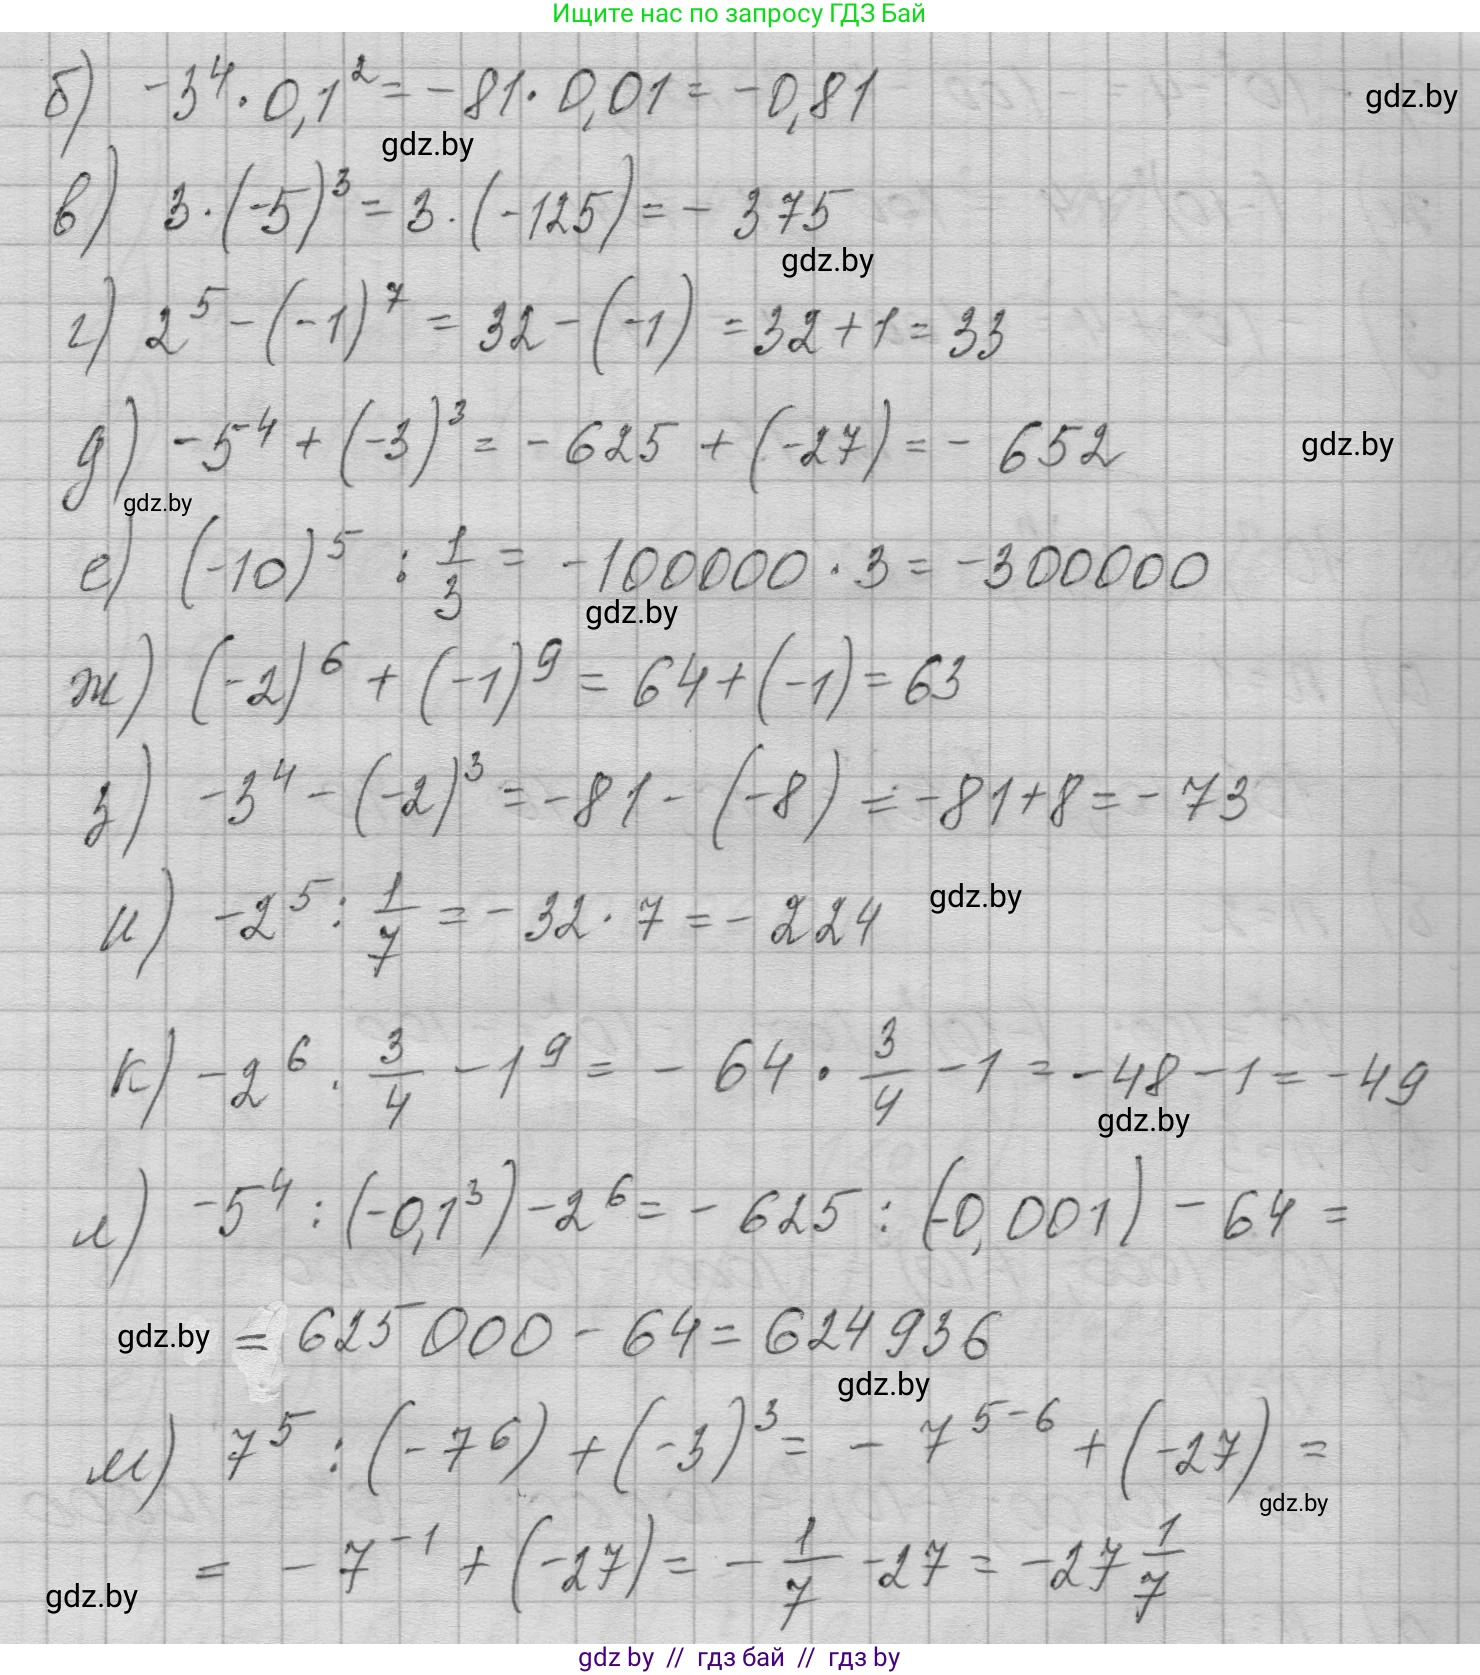 Ищите нас по запросу ГДЗ Бай
б) -3⁴ · 0,1² = -81 · 0,01 = -0,81
gdz.by
gdz.by
в) 3 · (-5)³ = 3 · (-125) = - 375
gdz.by
г) 2⁵ - (-1)⁷ = 32 - (-1) = 32 + 1 = 33
д) -5⁴ + (-3)³ = - 625 + (-27) = - 652
gdz.by
gdz.by
е) (-10)⁵ : 1/3 = -100000 · 3 = -300000
gdz.by
ж) (-2)⁶ + (-1)⁹ = 64 + (-1) = 63
з) -3⁴ - (-2)³ = -81 - (-8) = -81 + 8 = - 73
и) -2⁵ : 1/7 = - 32 · 7 = - 224
gdz.by
к) -2⁶ · 3/4 - 1⁹ = - 64 · 3/4 - 1 = -48 - 1 = -49
gdz.by
л) -5⁴ : (-0,1³) - 2⁶ = - 625 : (-0,001) - 64 =
gdz.by
= 625 000 - 64 = 624 936
gdz.by
м) 7⁵ : (-7⁶) + (-3)³ = - 7⁵⁻⁶ + (-27) =
gdz.by
= - 7⁻¹ + (-27) = - 1/7 - 27 = -27 1/7
gdz.by
gdz by // гдз бай // гдз by